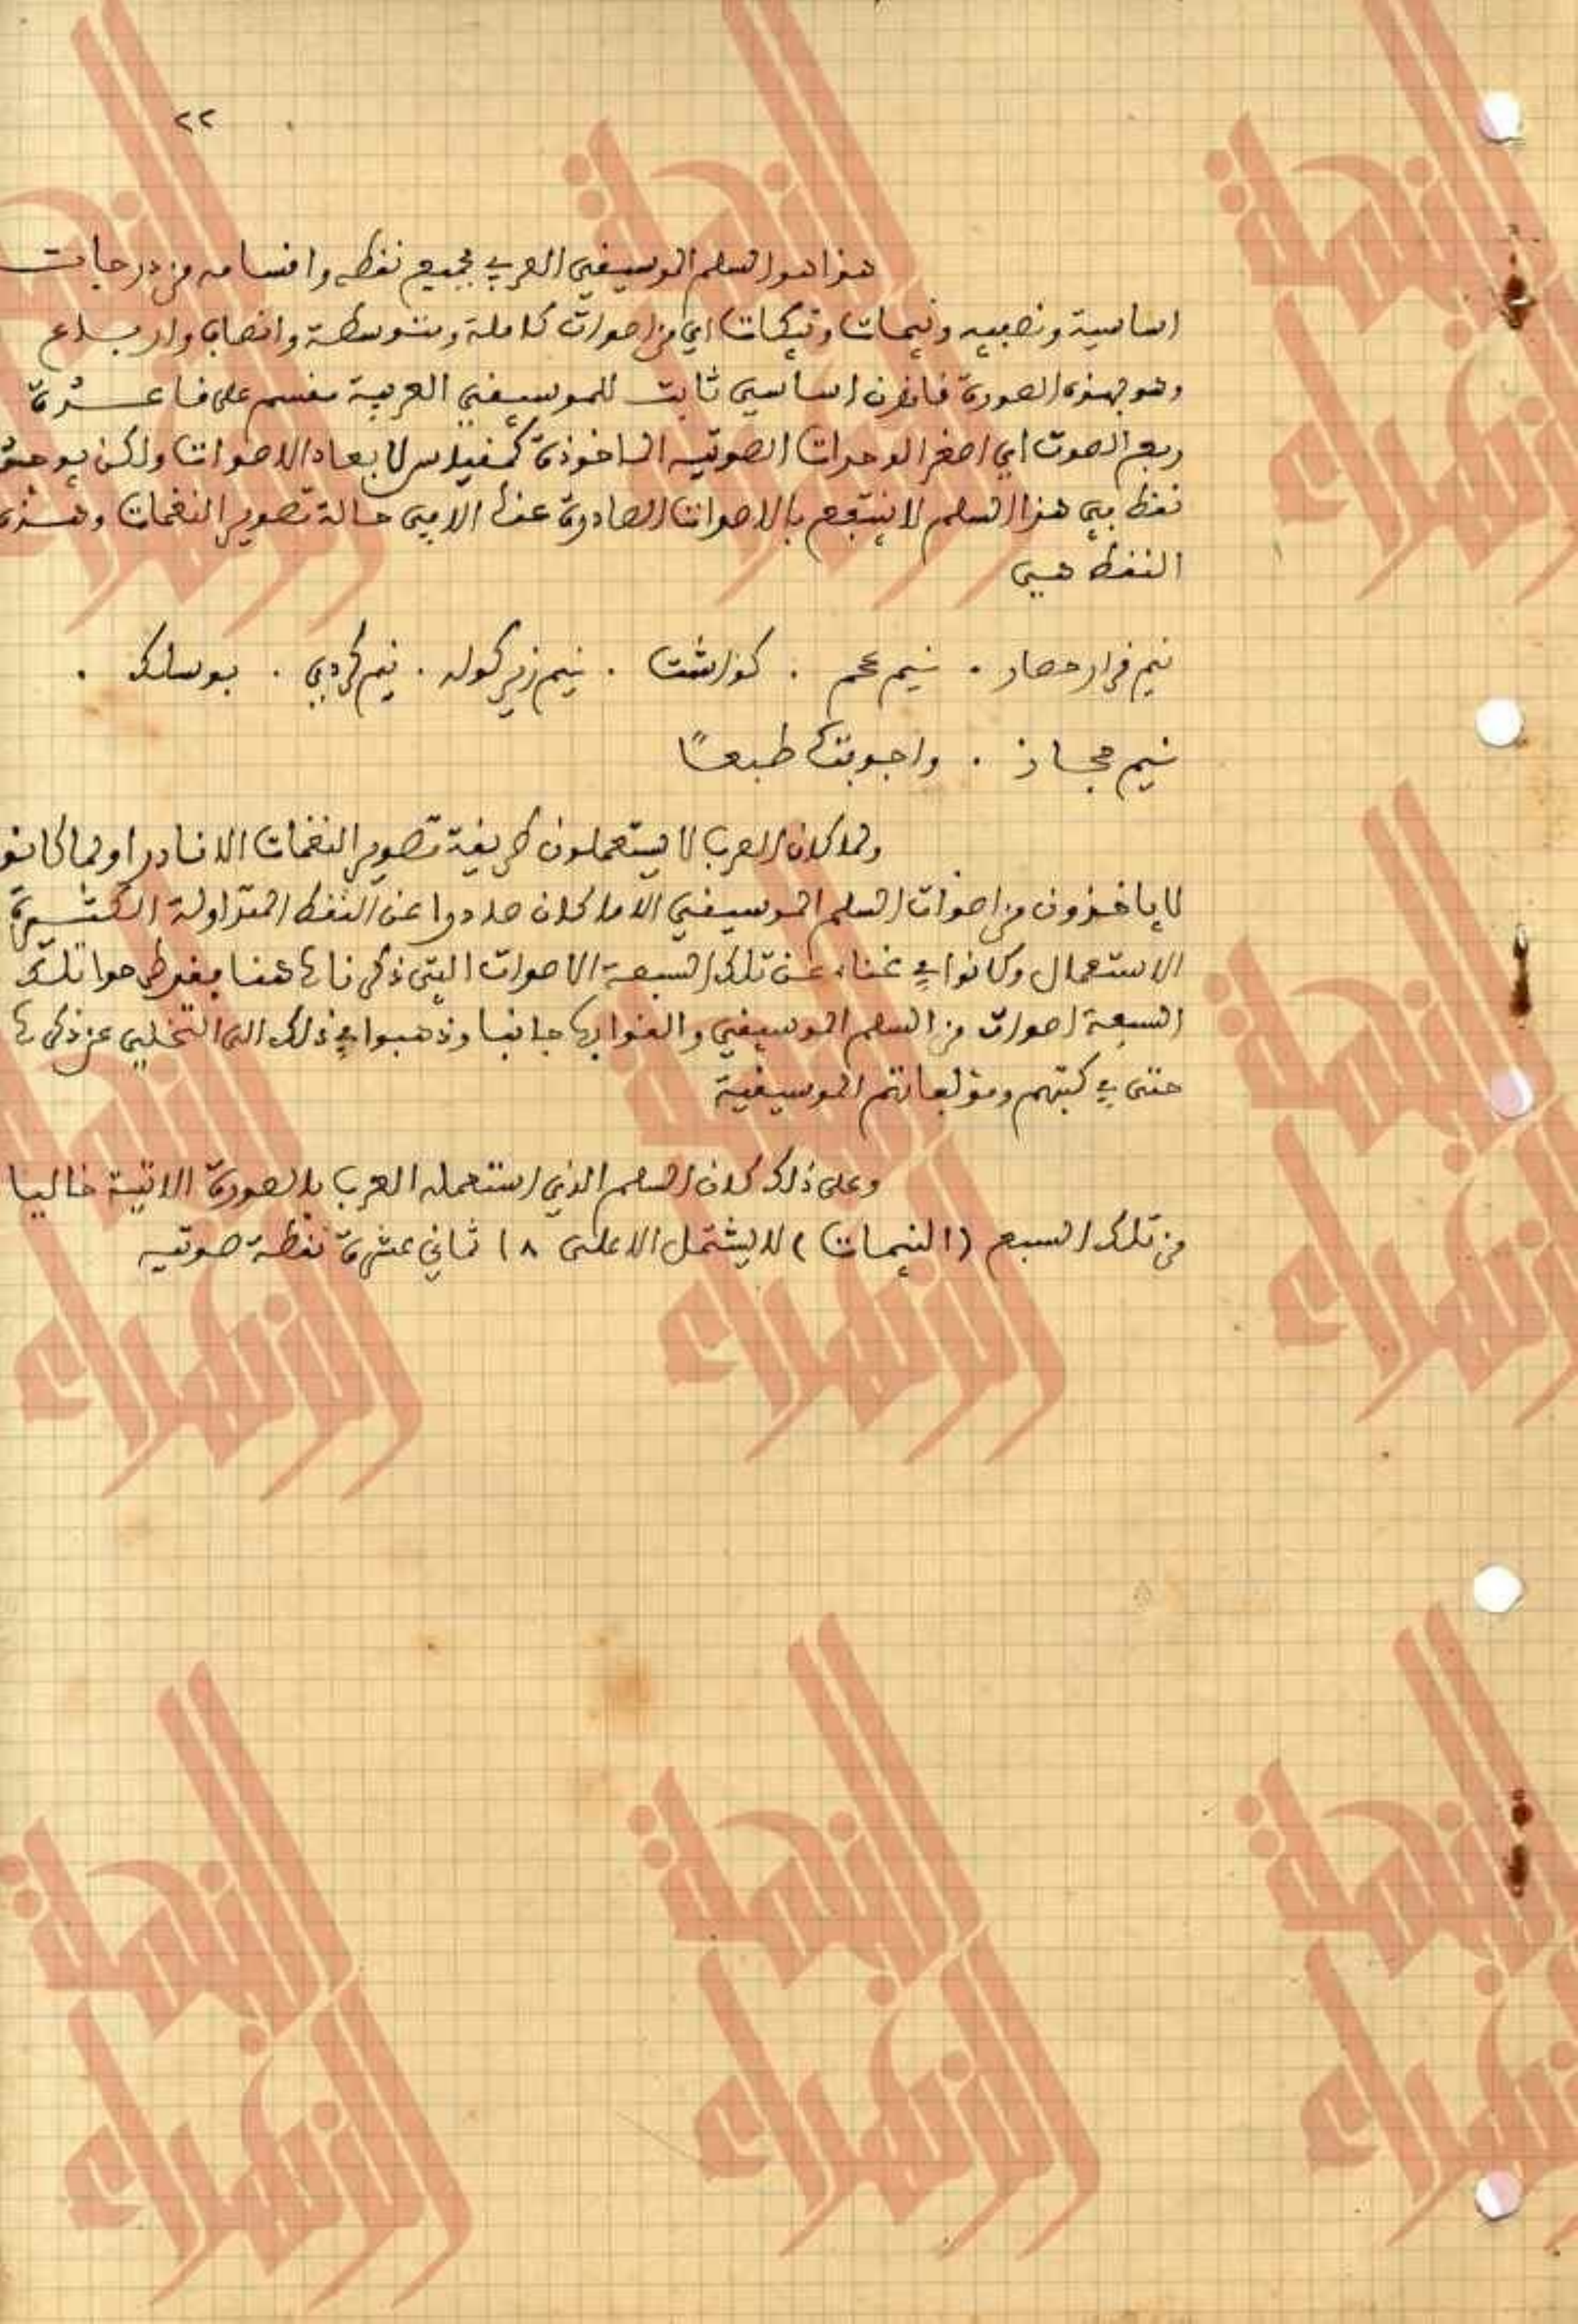 ٢٢
هذا هو السلم الموسيقي العربي بجميع نقطه واقسامه من درجات
اساسية ونصفيه ونيمات وتيكات اي من اصوات كاملة ومتوسطة وانصاف وارباع
وهو بهذه الصورة قانون اساسي ثابت للموسيقى العربية مقسم على قاعدة
ربع الصوت اي اصغر الوحدات الصوتيه الماخوذة كمقياس لابعاد الاصوات ولكن يوجد
نقط في هذا السلم لا ينتفع بالاصوات الصادرة عنها الا في حالة تصوير النغمات وهذه
النقط هي
نيم قرار حصار . نيم عجم . كوراشت . نيم زيركوله . نيم كردي . بوسلك .
نيم حجاز . واجوبتها طبعاً
ولما كان العرب لا يستعملون طريقة تصوير النغمات الا نادرا ولما كانو
لا ياخذون من اصوات السلم الموسيقي الا ما كان صادرا عن النقط المتداولة الكثيرة
الاستعمال وكانوا في غناء عن تلك السبعة الاصوات التي ذكرناها هنا فقد طرحوا تلك
السبعة اصوات من السلم الموسيقي والقوا بها جانبا وذهبوا في ذلك الى التخلي عن ذكرها
حتى في كتبهم ومؤلفاتهم الموسيقية
وعلى ذلك كان السلم الذي استعمله العرب بالصورة الاتية خاليا
من تلك السبع (النيمات) لا يشتمل الا على ١٨ ثماني عشرة نقطة صوتيه
النهضة
الزهراء